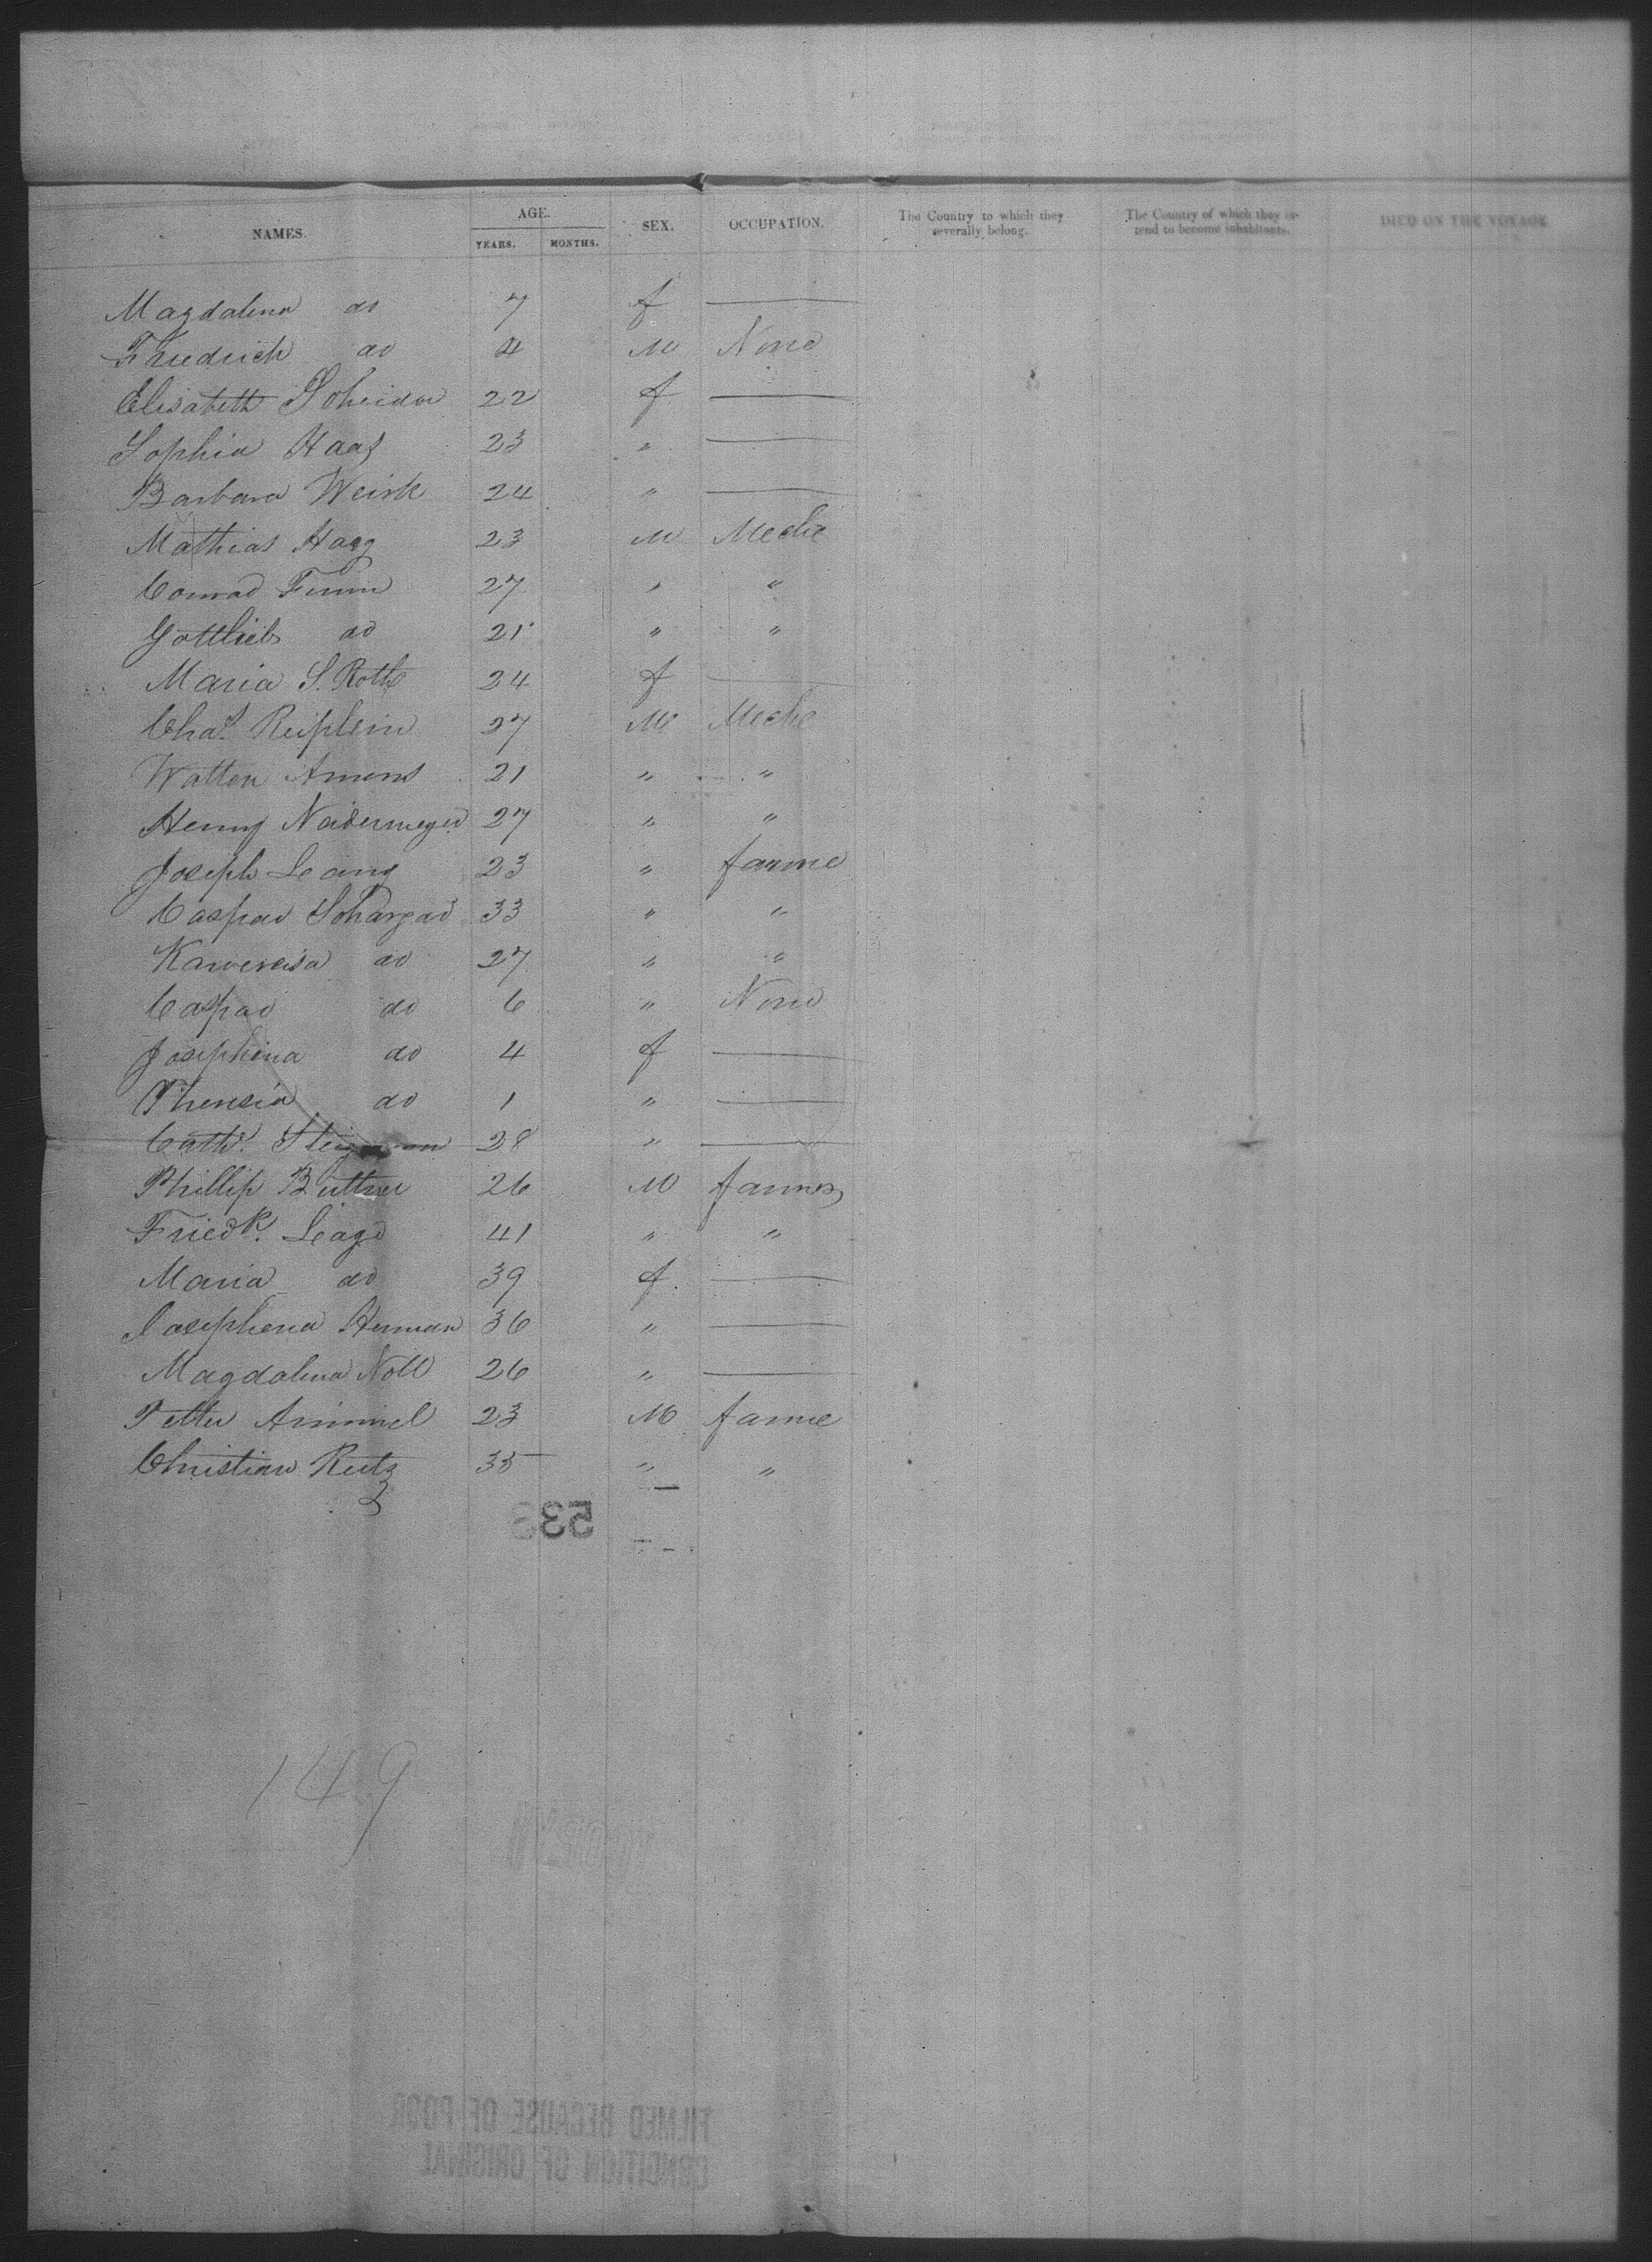 NAMES. AGE. YEARS. MONTHS. SEX. OCCUPATION. The Country to which they severally belong. The Country of which they intend to become inhabitants. DIED ON THE VOYAGE.
Magdalena do 7 f
Friedrich do 4 M None
Elisabeth Scheider 22 f
Sophia Haas 23 "
Barbara Weirk 24 "
Mathias Haag 23 M Meche
Conrad Fumm 27 " "
Gottlieb do 21 " "
Maria S. Roth 24 f
Chas. Reiplein 27 M Meche
Walter Amens 21 " "
Henry Neidermeyer 27 " "
Joseph Leang 23 " farme
Caspar Schargad 33 " "
do 27 " "
Caspar do 6 " None
Josephina do 4 f
Theresia do 1 "
Cath. 28 "
Phillip Buttner 26 M farmer
Friedk. Leage 41 " "
Maria do 39 f
Josephena Herman 36 "
Magdalena Noll 26 "
Petter Arimmel 23 M farme
Christian Reitz 35 " "
533
149
FILMED BECAUSE OF POOR
CONDITION OF ORIGINAL